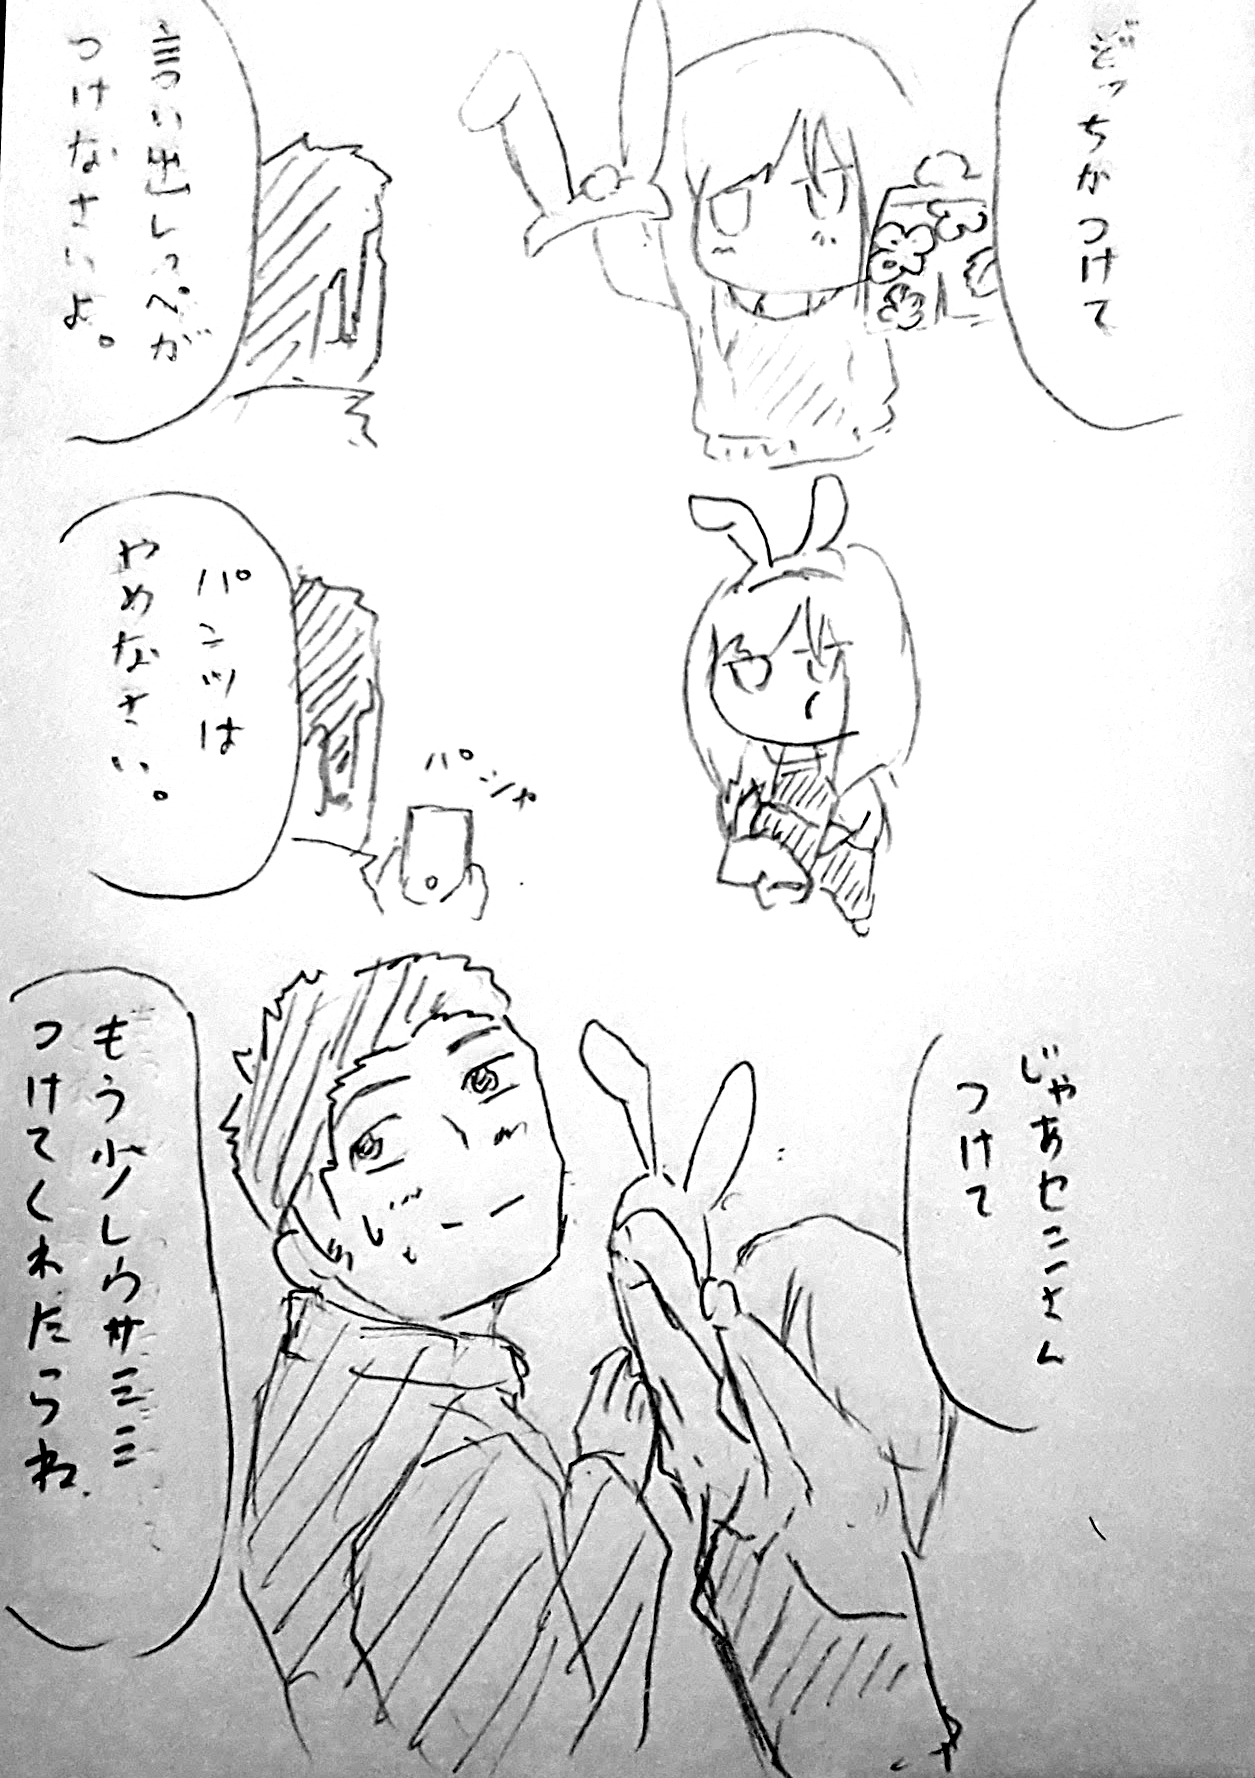 どっちかつけて
言い出しっぺが
つけなさいよ。
パンツは
やめなさい。
パシャ
じゃあセンニさん
つけて
もう少しウサミミ
つけてくれたらね.